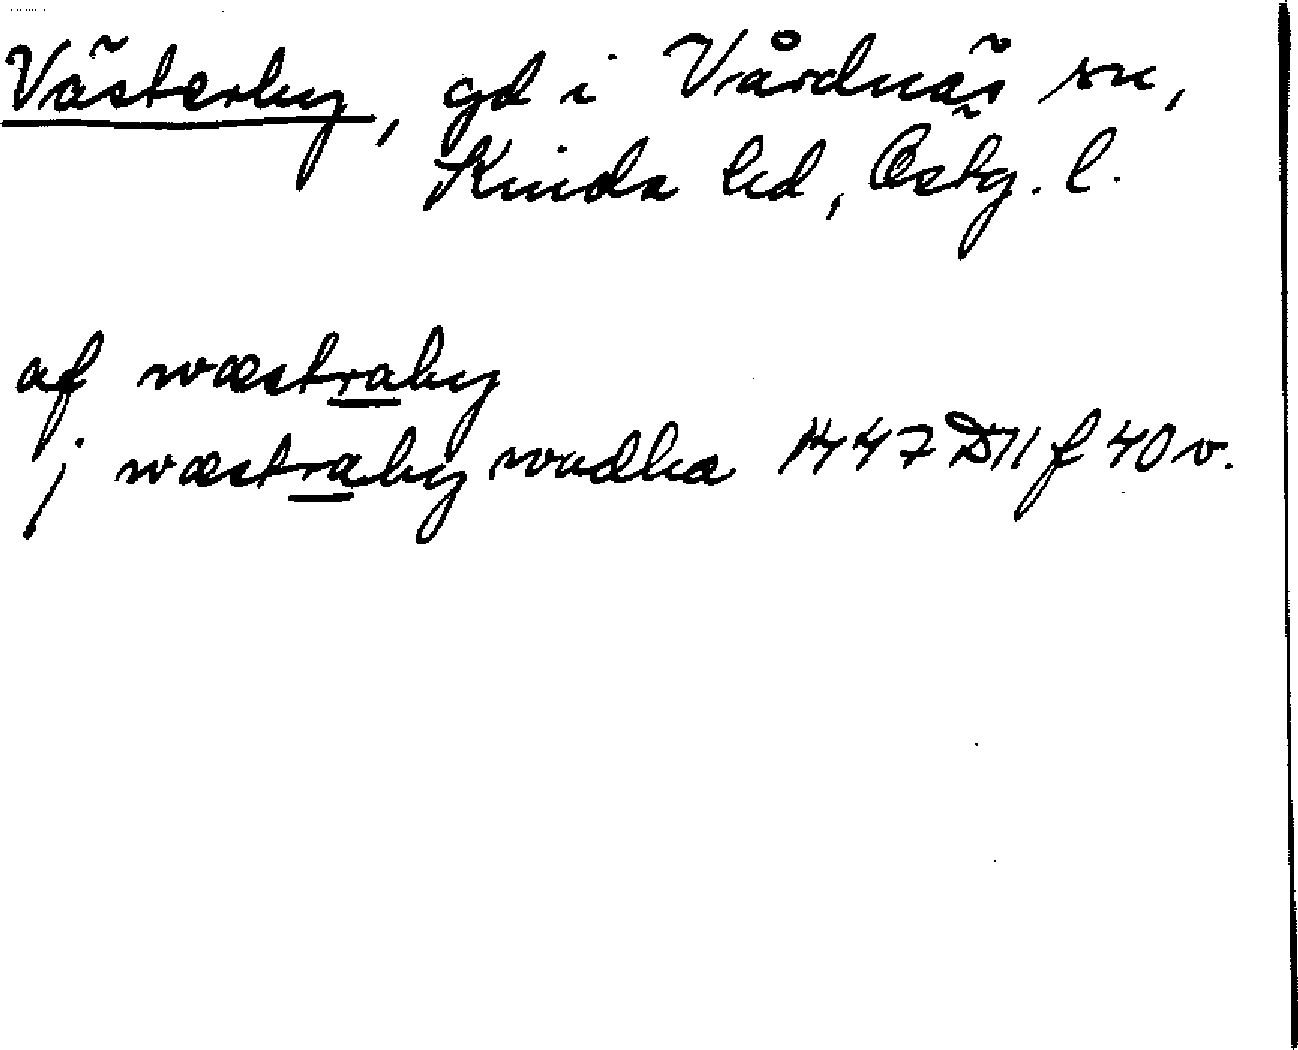 Västerby, gd i Vårdnäs sn,
Kinda hd, Östg. l.
af wæstraby
j wæstraby wudha 1447 D11 f 40 v.